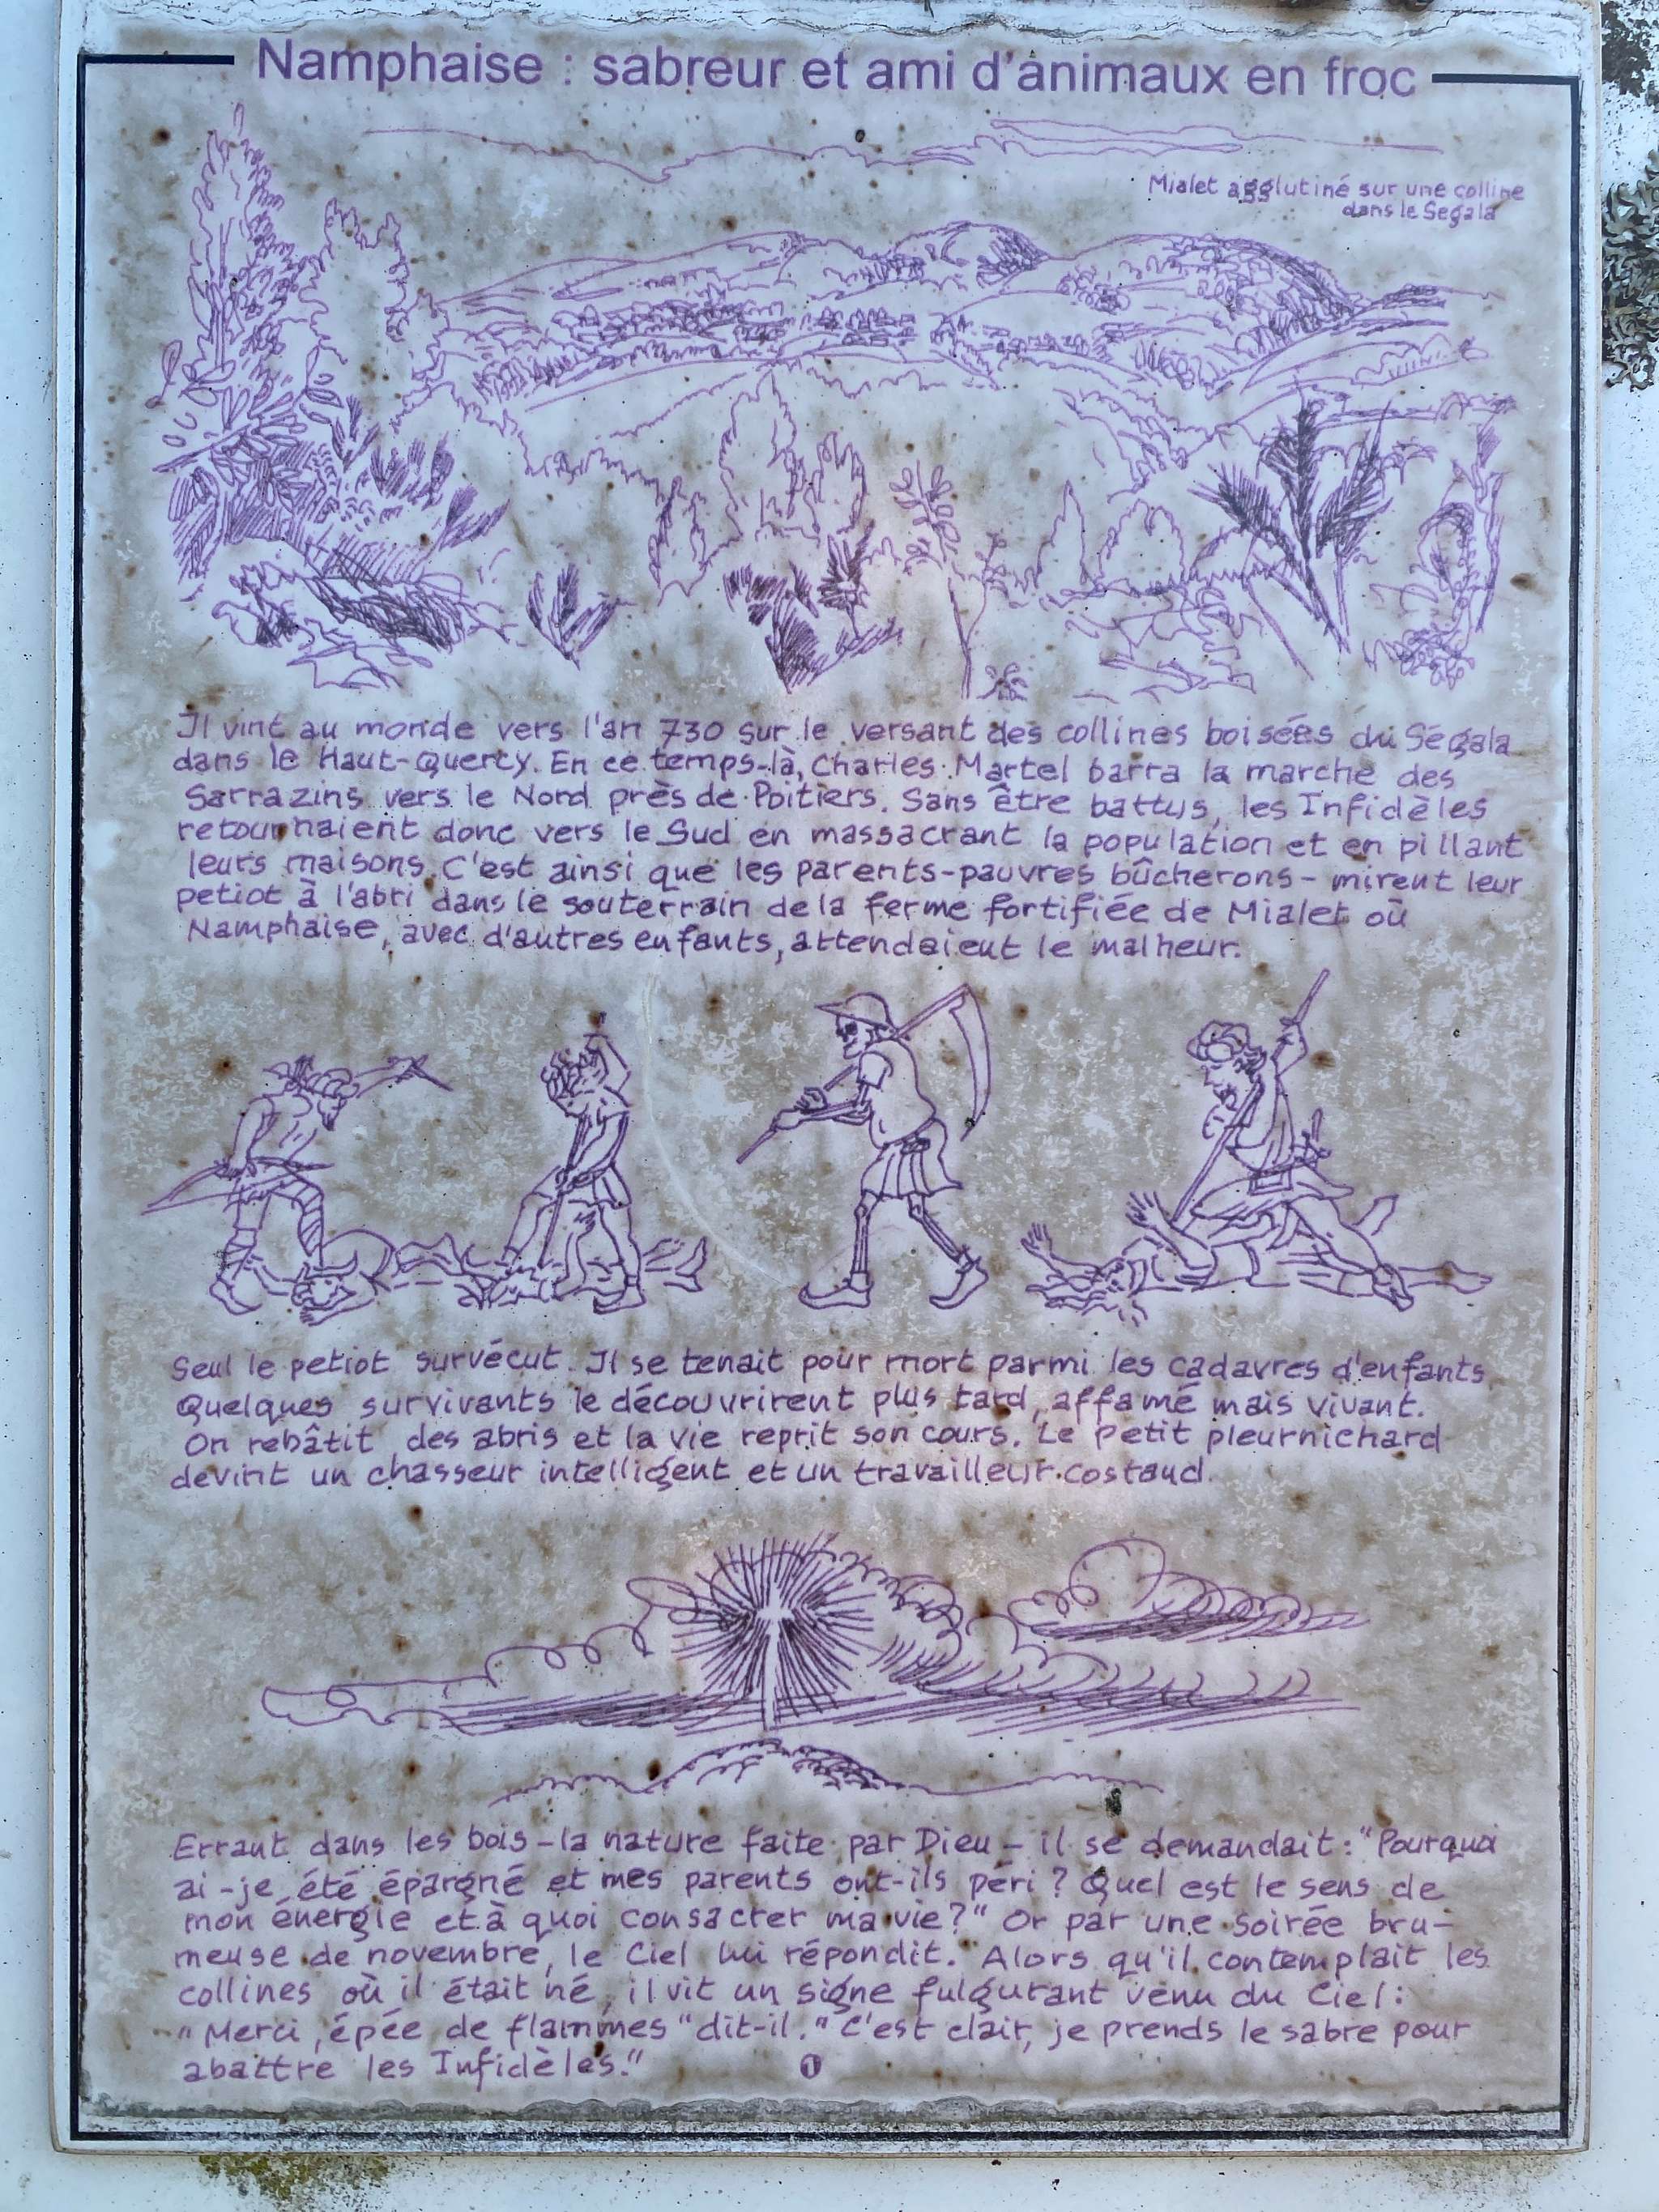 Namphaise : sabreur et ami d'animaux en froc
Mialet agglutiné sur une colline
dans le Ségala
Il vint au monde vers l'an 730 sur le versant des collines boisées du Ségala
dans le Haut-Quercy. En ce temps-là, Charles Martel barra la marche des
Sarrazins vers le Nord près de Poitiers. Sans être battus, les Infidèles
retournaient donc vers le Sud en massacrant la population et en pillant
leurs maisons. C'est ainsi que les parents-pauvres bûcherons- mirent leur
petiot à l'abri dans le souterrain de la ferme fortifiée de Mialet où
Namphaise, avec d'autres enfants, attendaient le malheur.
Seul le petiot survécut. Il se tenait pour mort parmi les cadavres d'enfants.
Quelques survivants le découvrirent plus tard, affamé mais vivant.
On rebâtit des abris et la vie reprit son cours. Le petit pleurnichard
devint un chasseur intelligent et un travailleur costaud.
Errant dans les bois - la nature faite par Dieu - il se demandait : "Pourquoi
ai-je été épargné et mes parents ont-ils péri ? Quel est le sens de
mon énergie et à quoi consacrer ma vie?" Or par une soirée bru-
meuse de novembre, le Ciel lui répondit. Alors qu'il contemplait les
collines où il était né, il vit un signe fulgurant venu du Ciel :
"Merci, épée de flammes" dit-il. "C'est clair, je prends le sabre pour
abattre les Infidèles." 1